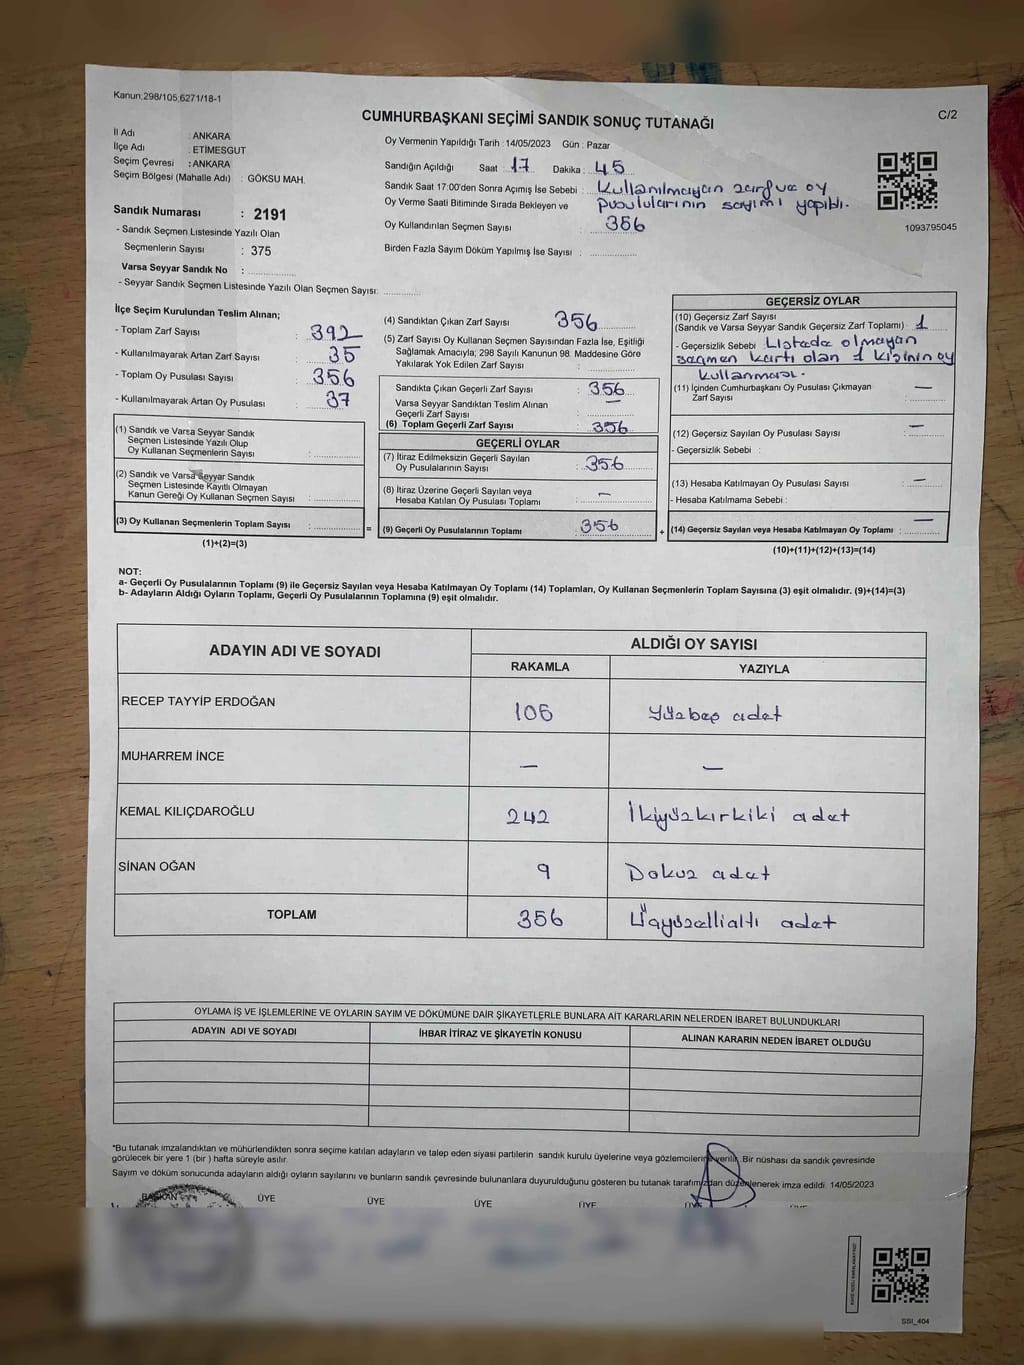 Kanun:298/105;6271/18-1
C/2
CUMHURBAŞKANI SEÇİMİ SANDIK SONUÇ TUTANAĞI
İl Adı : ANKARA
İlçe Adı : ETİMESGUT
Seçim Çevresi : ANKARA
Seçim Bölgesi (Mahalle Adı) : GÖKSU MAH.
Sandık Numarası : 2191
- Sandık Seçmen Listesinde Yazılı Olan
Seçmenlerin Sayısı : 375
Varsa Seyyar Sandık No :
- Seyyar Sandık Seçmen Listesinde Yazılı Olan Seçmen Sayısı:
Oy Vermenin Yapıldığı Tarih : 14/05/2023 Gün : Pazar
Sandığın Açıldığı Saat : 17 Dakika : 45
Sandık Saat 17:00'den Sonra Açımış İse Sebebi : Kullanılmayan zarf ve oy
pusulularının sayımı yapıldı.
Oy Verme Saati Bitiminde Sırada Bekleyen ve
Oy Kullandırılan Seçmen Sayısı : 356
Birden Fazla Sayım Döküm Yapılmış İse Sayısı :
1093795045
İlçe Seçim Kurulundan Teslim Alınan;
- Toplam Zarf Sayısı : 392
- Kullanılmayarak Artan Zarf Sayısı : 35
- Toplam Oy Pusulası Sayısı : 356
- Kullanılmayarak Artan Oy Pusulası : 37
(1) Sandık ve Varsa Seyyar Sandık
Seçmen Listesinde Yazılı Olup
Oy Kullanan Seçmenlerin Sayısı :
(2) Sandık ve Varsa Seyyar Sandık
Seçmen Listesinde Kayıtlı Olmayan
Kanun Gereği Oy Kullanan Seçmen Sayısı :
(3) Oy Kullanan Seçmenlerin Toplam Sayısı :
(1)+(2)=(3)
(4) Sandıktan Çıkan Zarf Sayısı 356
(5) Zarf Sayısı Oy Kullanan Seçmen Sayısından Fazla İse, Eşitliği
Sağlamak Amacıyla; 298 Sayılı Kanunun 98. Maddesine Göre
Yakılarak Yok Edilen Zarf Sayısı :
Sandıkta Çıkan Geçerli Zarf Sayısı : 356
Varsa Seyyar Sandıktan Teslim Alınan —
Geçerli Zarf Sayısı :
(6) Toplam Geçerli Zarf Sayısı : 356
GEÇERLİ OYLAR
(7) İtiraz Edilmeksizin Geçerli Sayılan
Oy Pusulalarının Sayısı : 356
(8) İtiraz Üzerine Geçerli Sayılan veya
Hesaba Katılan Oy Pusulası Toplamı : —
= (9) Geçerli Oy Pusulalarının Toplamı : 356
GEÇERSİZ OYLAR
(10) Geçersiz Zarf Sayısı
(Sandık ve Varsa Seyyar Sandık Geçersiz Zarf Toplamı) : 1
- Geçersizlik Sebebi : Listede olmayan
seçmen kartı olan 1 kişinin oy
kullanması.
(11) İçinden Cumhurbaşkanı Oy Pusulası Çıkmayan —
Zarf Sayısı :
(12) Geçersiz Sayılan Oy Pusulası Sayısı : —
- Geçersizlik Sebebi :
(13) Hesaba Katılmayan Oy Pusulası Sayısı : —
- Hesaba Katılmama Sebebi :
+ (14) Geçersiz Sayılan veya Hesaba Katılmayan Oy Toplamı : —
(10)+(11)+(12)+(13)=(14)
NOT:
a- Geçerli Oy Pusulalarının Toplamı (9) ile Geçersiz Sayılan veya Hesaba Katılmayan Oy Toplamı (14) Toplamları, Oy Kullanan Seçmenlerin Toplam Sayısına (3) eşit olmalıdır. (9)+(14)=(3)
b- Adayların Aldığı Oyların Toplamı, Geçerli Oy Pusulalarının Toplamına (9) eşit olmalıdır.
ADAYIN ADI VE SOYADI ALDIĞI OY SAYISI
RAKAMLA YAZIYLA
RECEP TAYYİP ERDOĞAN 105 Yüzbeş adet
MUHARREM İNCE — —
KEMAL KILIÇDAROĞLU 242 İkiyüzkırkiki adet
SİNAN OĞAN 9 Dokuz adet
TOPLAM 356 Üçyüzellialtı adet
OYLAMA İŞ VE İŞLEMLERİNE VE OYLARIN SAYIM VE DÖKÜMÜNE DAİR ŞİKAYETLERLE BUNLARA AİT KARARLARIN NELERDEN İBARET BULUNDUKLARI
ADAYIN ADI VE SOYADI İHBAR İTİRAZ VE ŞİKAYETİN KONUSU ALINAN KARARIN NEDEN İBARET OLDUĞU
*Bu tutanak imzalandıktan ve mühürlendikten sonra seçime katılan adayların ve talep eden siyasi partilerin sandık kurulu üyelerine veya gözlemcilerine verilir. Bir nüshası da sandık çevresinde
görülecek bir yere 1 (bir ) hafta süreyle asılır.
Sayım ve döküm sonucunda adayların aldığı oyların sayılarını ve bunların sandık çevresinde bulunanlara duyurulduğunu gösteren bu tutanak tarafımızdan düzenlenerek imza edildi. 14/05/2023
BAŞKAN ÜYE ÜYE ÜYE ÜYE ÜYE
SSI_404